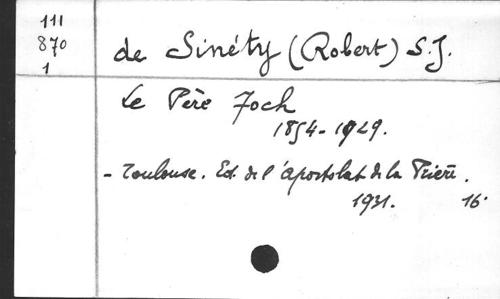 111
870
1
de Sinéty (Robert) S.J.
Le Père Foch
1854-1929.
- Toulouse. Ed. de l'apostolat de la Prière.
1931. 16°